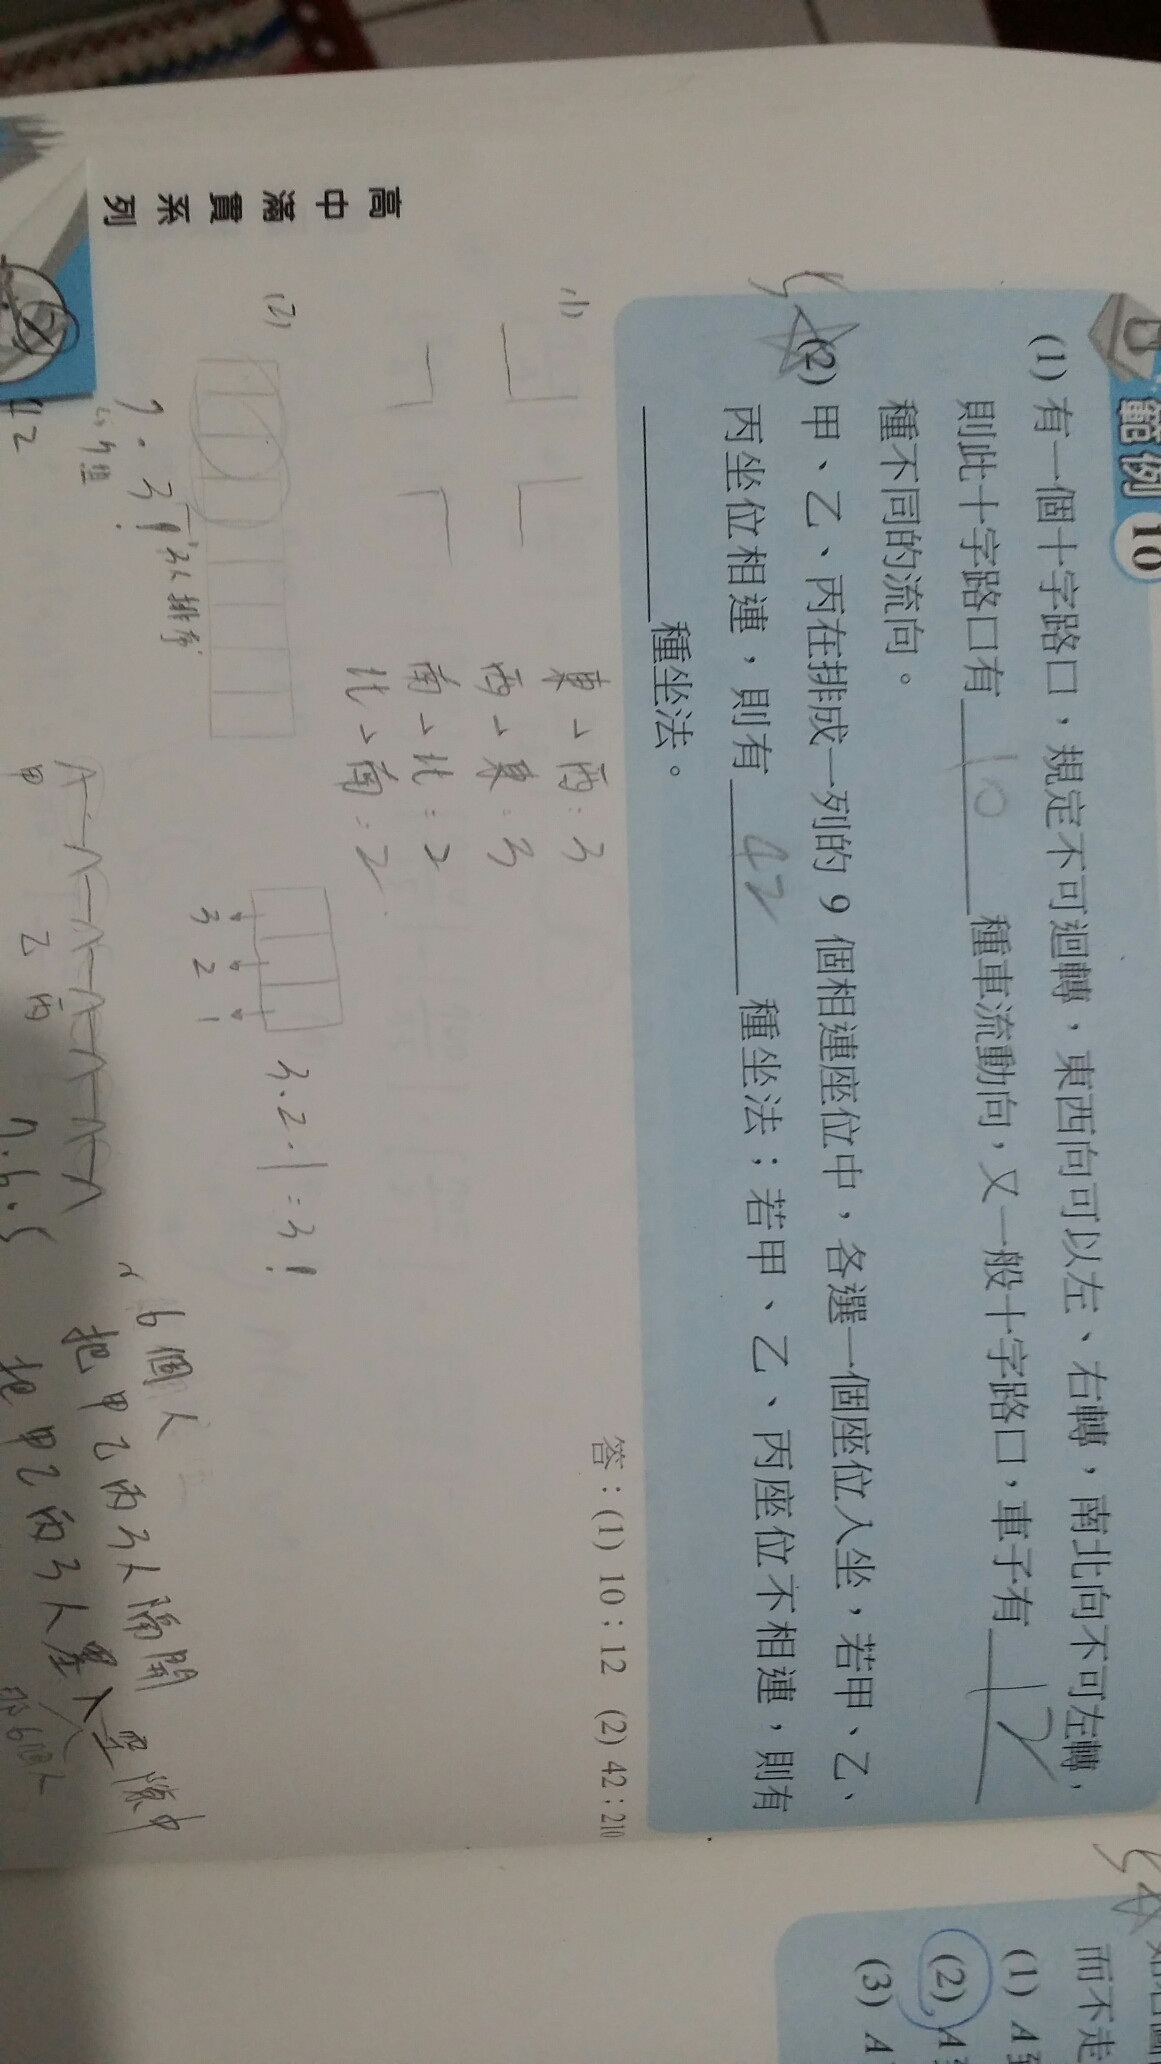 範例 10
(1) 有一個十字路口，規定不可迴轉，東西向可以左、右轉，南北向不可左轉，
則此十字路口有 10 種車流動向，又一般十字路口，車子有 12
種不同的流向。
(2) 甲、乙、丙在排成一列的 9 個相連座位中，各選一個座位入坐，若甲、乙、
丙坐位相連，則有 42 種坐法；若甲、乙、丙座位不相連，則有
種坐法。
答：(1) 10；12 (2) 42；210
(1)
東→西：3
西→東：3
南→北：2
北→南：2
(2)
3 2 1
3.2.1=3!
7.3!
3人排序
42
6個人
把甲乙丙3人隔開
甲 乙 丙
7.6.5
把甲乙丙3人塞入空隙中
高中滿貫系列
而不走
(1) A
(2) A
(3) A